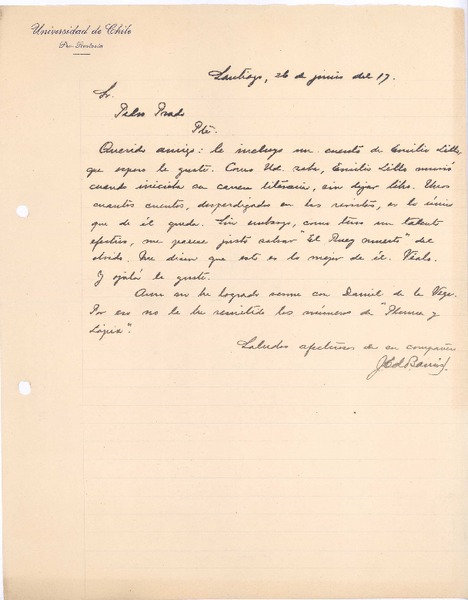 Universidad de Chile
Pro-Secretaría
Santiago, 26 de junio del 17.
Sr.
Pedro Prado
Pte.
Querido amigo: le incluyo un cuento de Emilio Lillo
que espero le guste. Como Ud. sabe, Emilio Lillo murió
cuando iniciaba su carrera literaria, sin dejar libro. Unos
cuantos cuentos, desperdigados en las revistas, es lo único
que de él queda. Sin embargo, como tuvo un talento
efectivo, me parece justo salvar "El Buey muerto" del
olvido. Me dicen que esto es lo mejor de él. Véalo.
Y ojalá le guste.
Aun no he logrado verme con Daniel de la Vega.
Por eso no le he remitido los números de "Pluma y
Lápiz".
Saludos afectuosos de su compañero
Ed. Barrios